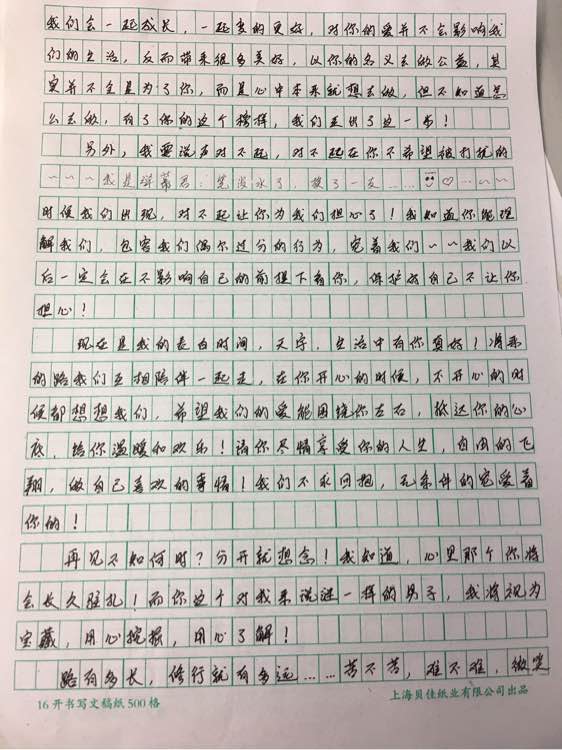 我们会一起成长，一起变的更好，对你的爱并不会影响我
们的生活，反而带来很多美好，以你的名义去做公益，其
实并不全是为了你，而是心中本来就想去做，但不知道怎
么去做，有了你的这个榜样，我们走出了这一步！
另外，我要说声对不起，对不起在你不希望被打扰的
~~~我是潇萧君：笔没水了，换了一支……♡…~~
时候我们出现，对不起让你为我们担心了！我知道你能理
解我们，包容我们偶尔过分的行为，宠着我们~~我们以
后一定会在不影响自己的前提下看你，保护好自己不让你
担心！
现在是我的表白时间，天宇，生活中有你真好！将来
的路我们互相陪伴一起走，在你开心的时候，不开心的时
候都想想我们，希望我们的爱能围绕你左右，抵达你的心
底，给你温暖和欢乐！请你尽情享受你的人生，自由的飞
翔，做自己喜欢的事情！我们不求回报，无条件的宠爱着
你的！
再见不如何时？分开就想念！我知道，心里那个你将
会长久驻扎！而你这个对我来说谜一样的男子，我将视为
宝藏，用心挖掘，用心了解！
路有多长，修行就有多远……苦不苦，难不难，微笑
16开书写文稿纸500格
上海贝佳纸业有限公司出品